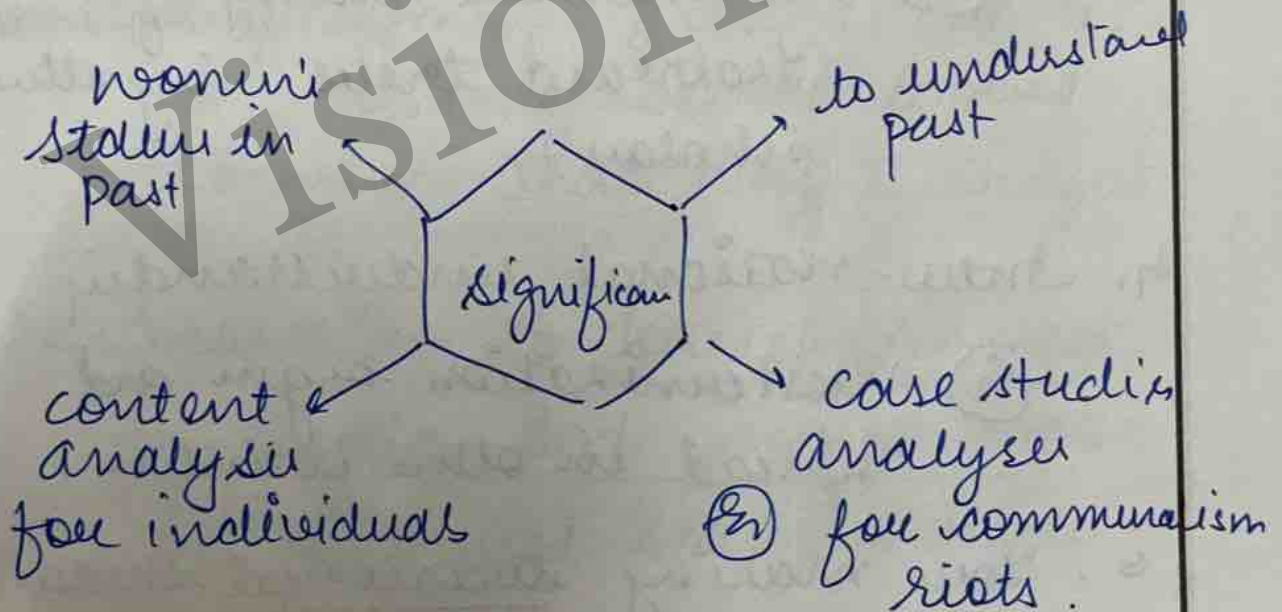 Vision
women's
status in
past
to understand
past
significan
content
analysis
for individuals
case studies
analyses
Ex for communalism
riots.